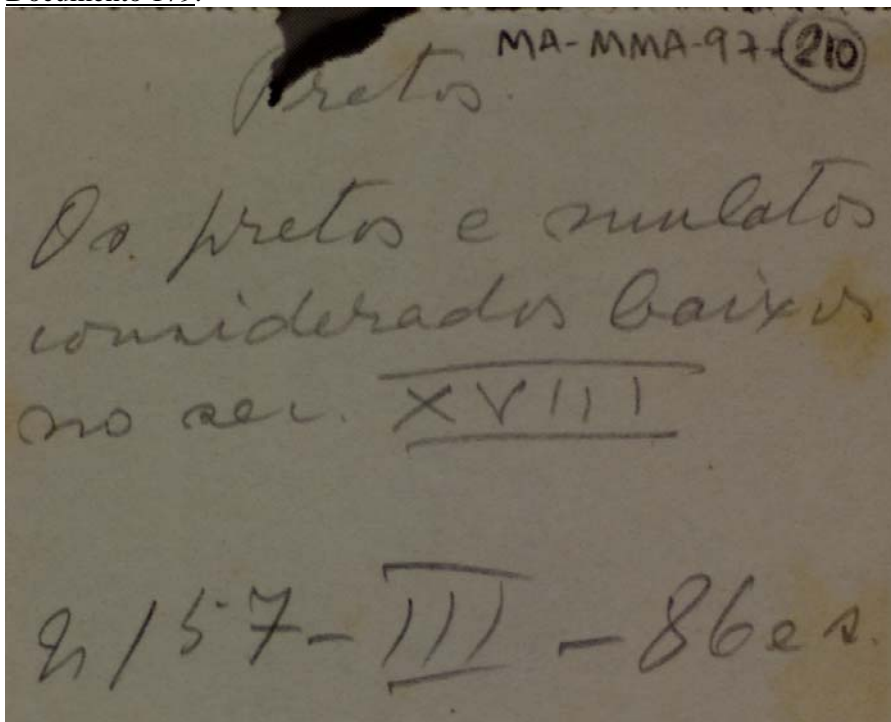 Documento 179.
MA-MMA-97-210
Pretos.
Os pretos e mulatos
considerados baixos
no sec. XVIII
157-III-86 e s.